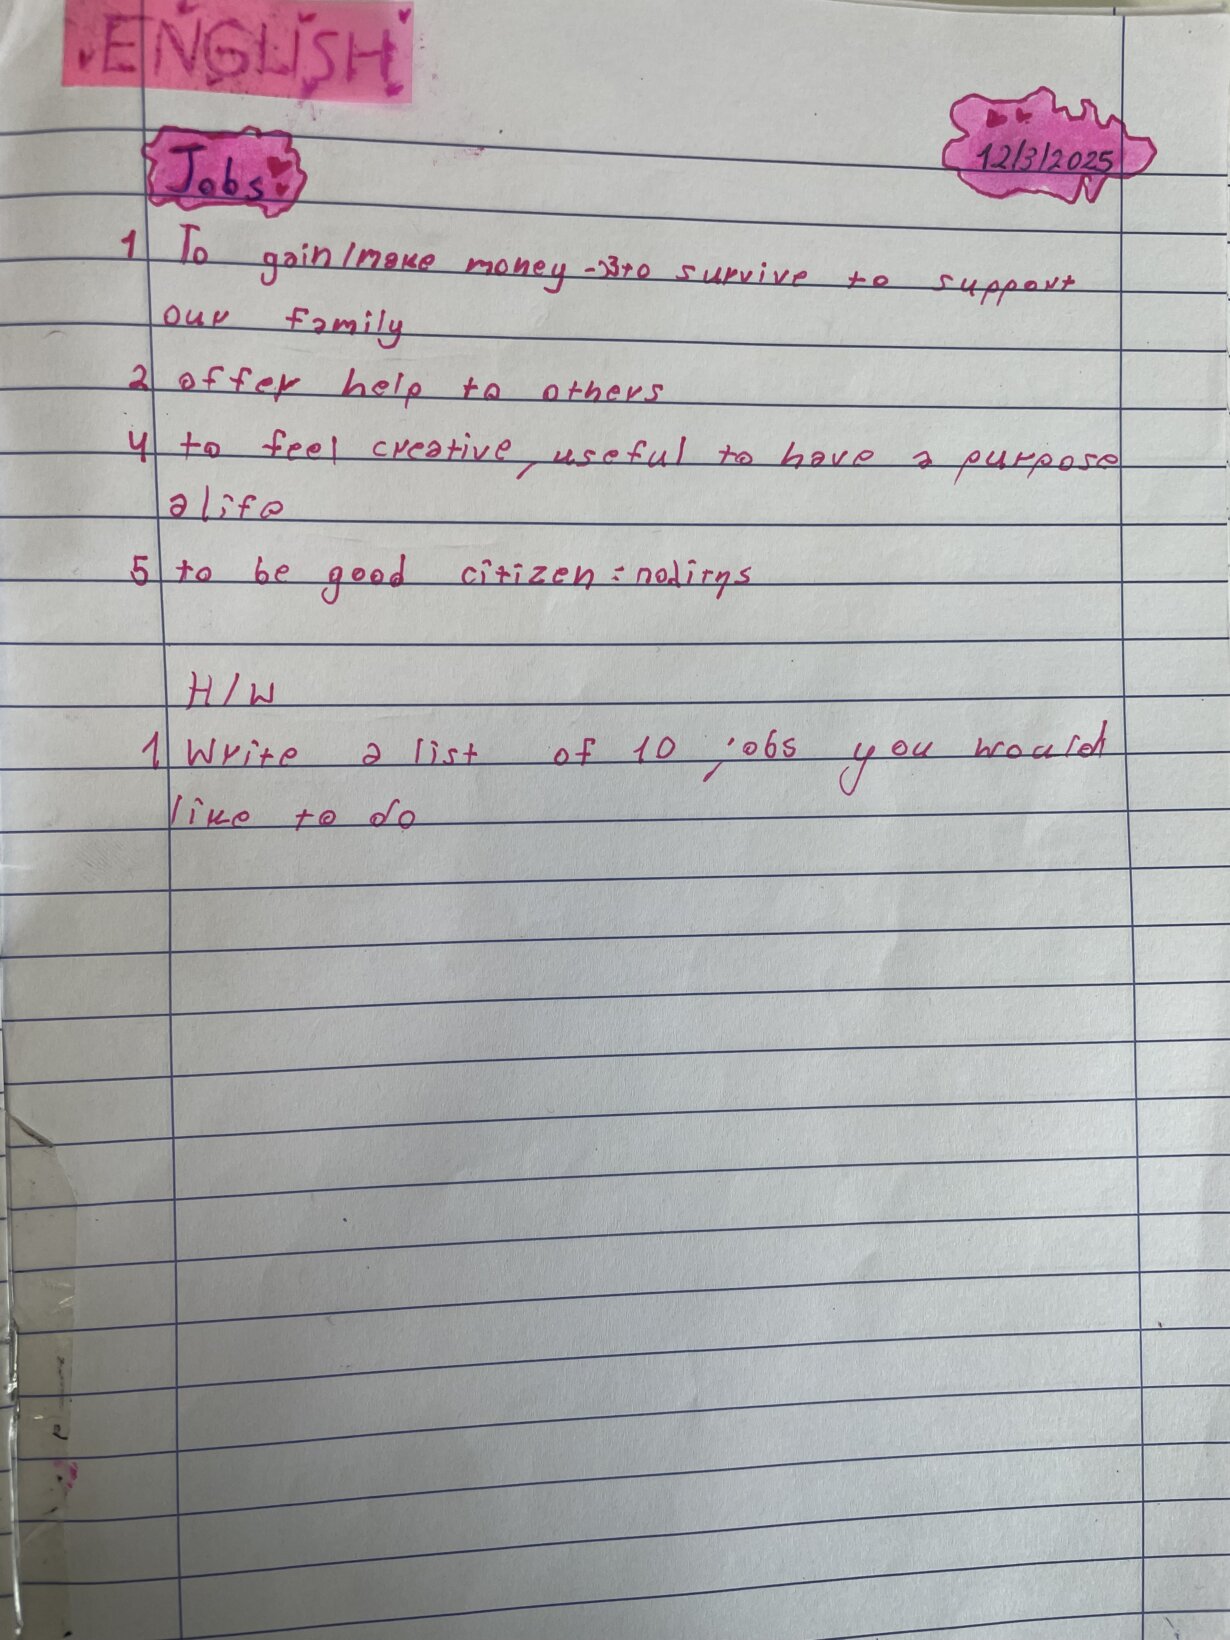 ENGLISH
Jobs
12/3/2025
1 To gain/make money →3 to survive to support
our family
2 offer help to others
4 to feel creative, useful to have a purpose
a life
5 to be good citizen :
H/W
1 Write a list of 10 jobs you would
like to do